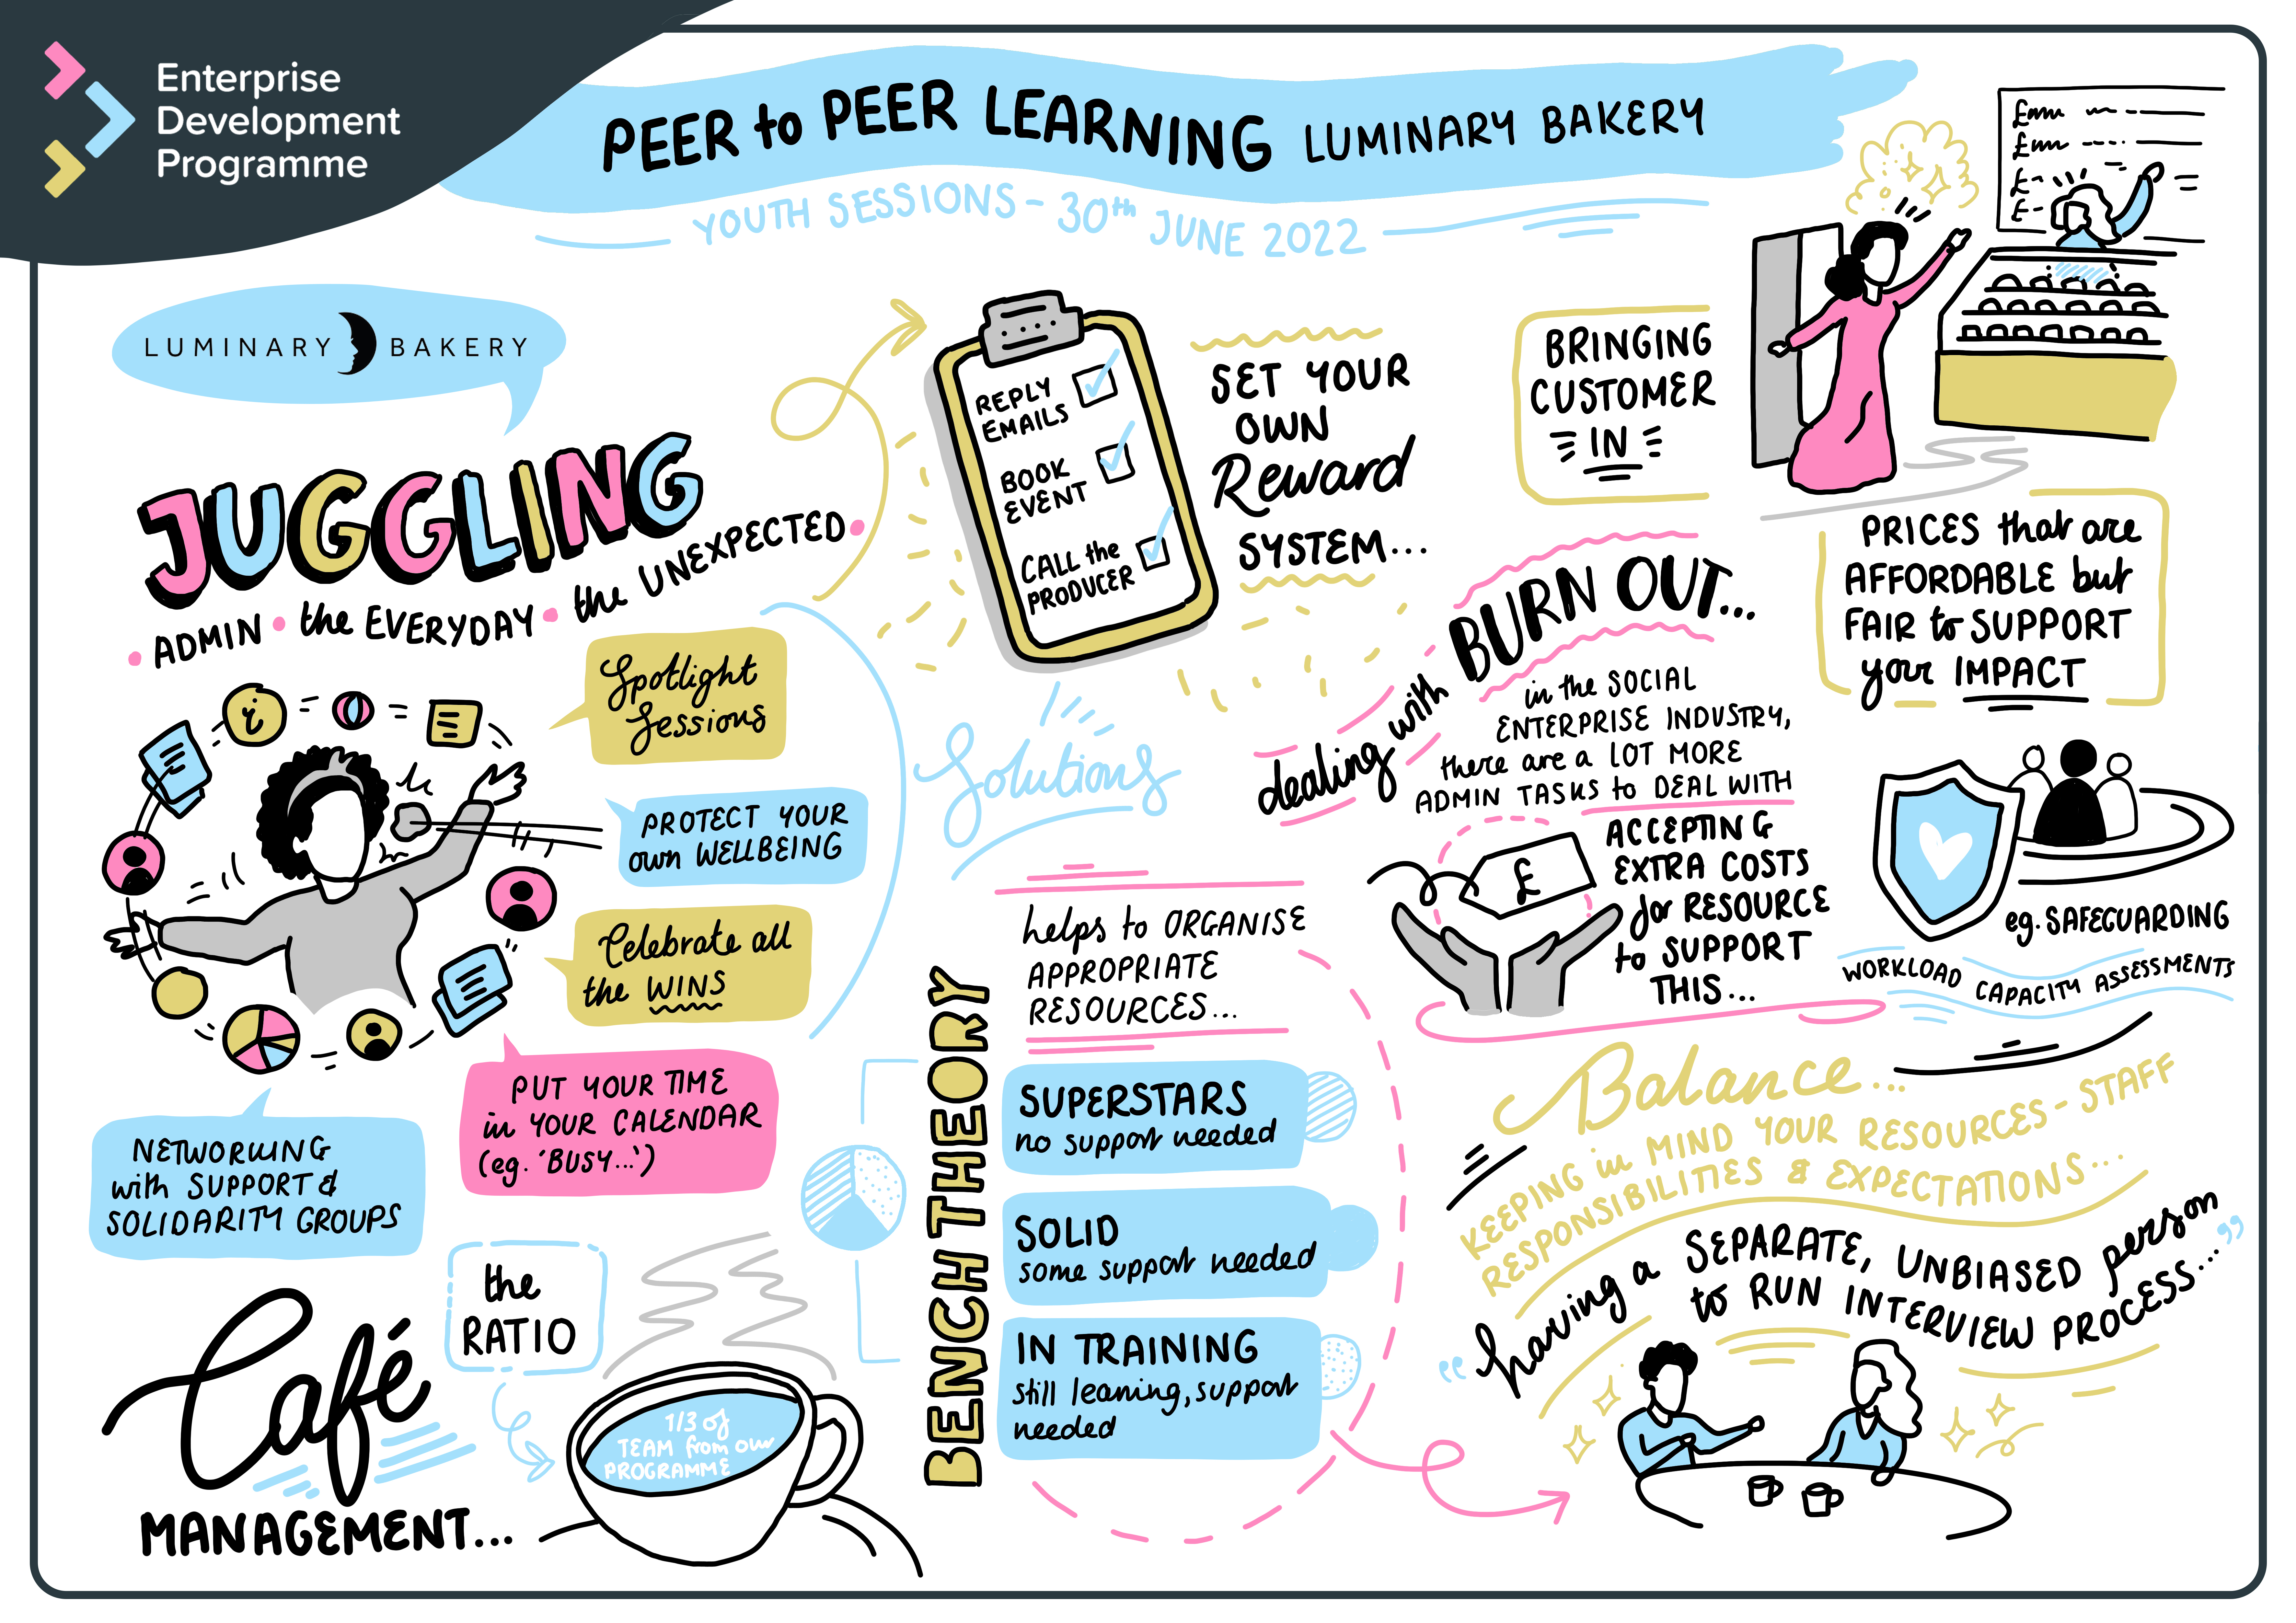 Enterprise
Development
Programme
PEER to PEER LEARNING LUMINARY BAKERY
YOUTH SESSIONS - 30th JUNE 2022
LUMINARY BAKERY
JUGGLING
• ADMIN • the EVERYDAY • the UNEXPECTED •
Spotlight
Sessions
PROTECT YOUR
own WELLBEING
Celebrate all
the WINS
PUT YOUR TIME
in YOUR CALENDAR
(eg. 'BUSY...')
NETWORKING
with SUPPORT &
SOLIDARITY GROUPS
i
REPLY
EMAILS
BOOK
EVENT
CALL the
PRODUCER
SET YOUR
OWN
Reward
SYSTEM...
Solutions
BRINGING
CUSTOMER
IN
£
£
£
£
PRICES that are
AFFORDABLE but
FAIR to SUPPORT
your IMPACT
dealing with BURN OUT...
in the SOCIAL
ENTERPRISE INDUSTRY,
there are a LOT MORE
ADMIN TASKS to DEAL WITH
£
ACCEPTING
EXTRA COSTS
for RESOURCE
to SUPPORT
THIS...
eg. SAFEGUARDING
WORKLOAD CAPACITY ASSESSMENTS
Café
MANAGEMENT...
the
RATIO
1/3 of
TEAM from our
PROGRAMME
BENCH THEORY
helps to ORGANISE
APPROPRIATE
RESOURCES...
SUPERSTARS
no support needed
SOLID
some support needed
IN TRAINING
still leaning, support
needed
Balance...
KEEPING in MIND YOUR RESOURCES - STAFF
RESPONSIBILITIES & EXPECTATIONS...
"having a SEPARATE, UNBIASED person
to RUN INTERVIEW PROCESS..."